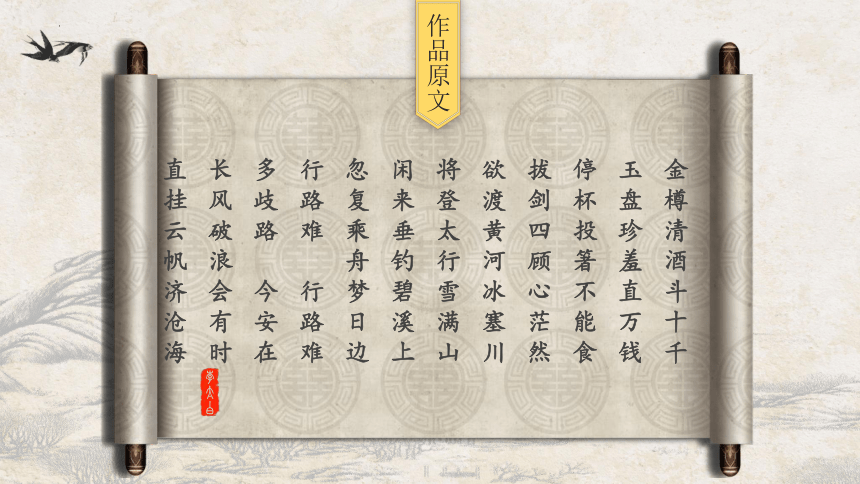 作品原文
金樽清酒斗十千
玉盘珍羞直万钱
停杯投箸不能食
拔剑四顾心茫然
欲渡黄河冰塞川
将登太行雪满山
闲来垂钓碧溪上
忽复乘舟梦日边
行路难 行路难
多歧路 今安在
长风破浪会有时
直挂云帆济沧海
李太白